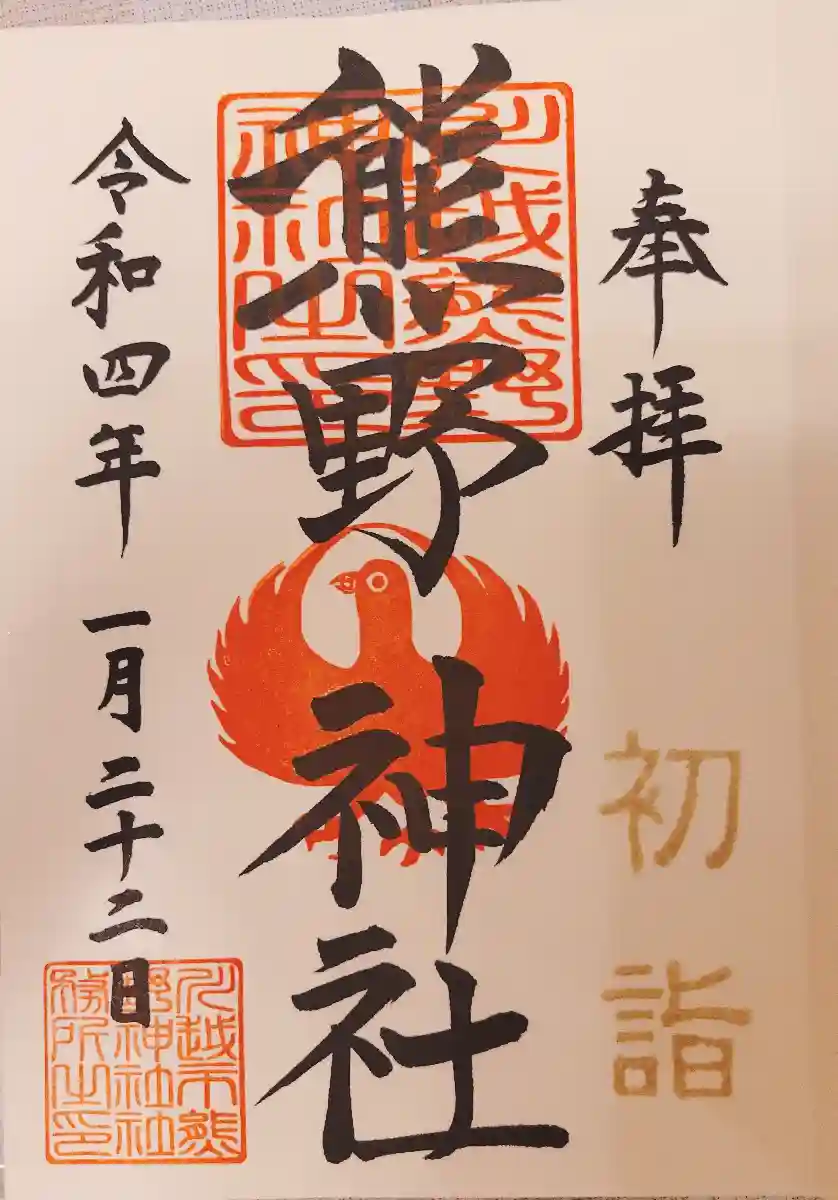 奉拝
初詣
熊野神社
川越熊野
神社之印
令和四年 一月二十二日
川越市熊
野神社社
務所之印